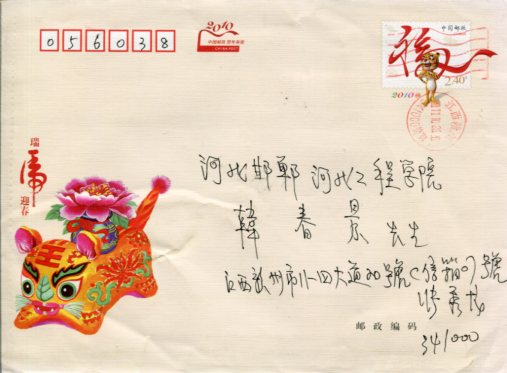 056038
2010
中国邮政 贺年有奖
CHINA POST
中国邮政
2.40元
2010
瑞
虎
迎春
河北邯郸 河北工程学院
韓春景 先生
江西赣州市八四大道20號(信箱0)號
邮政编码
341000